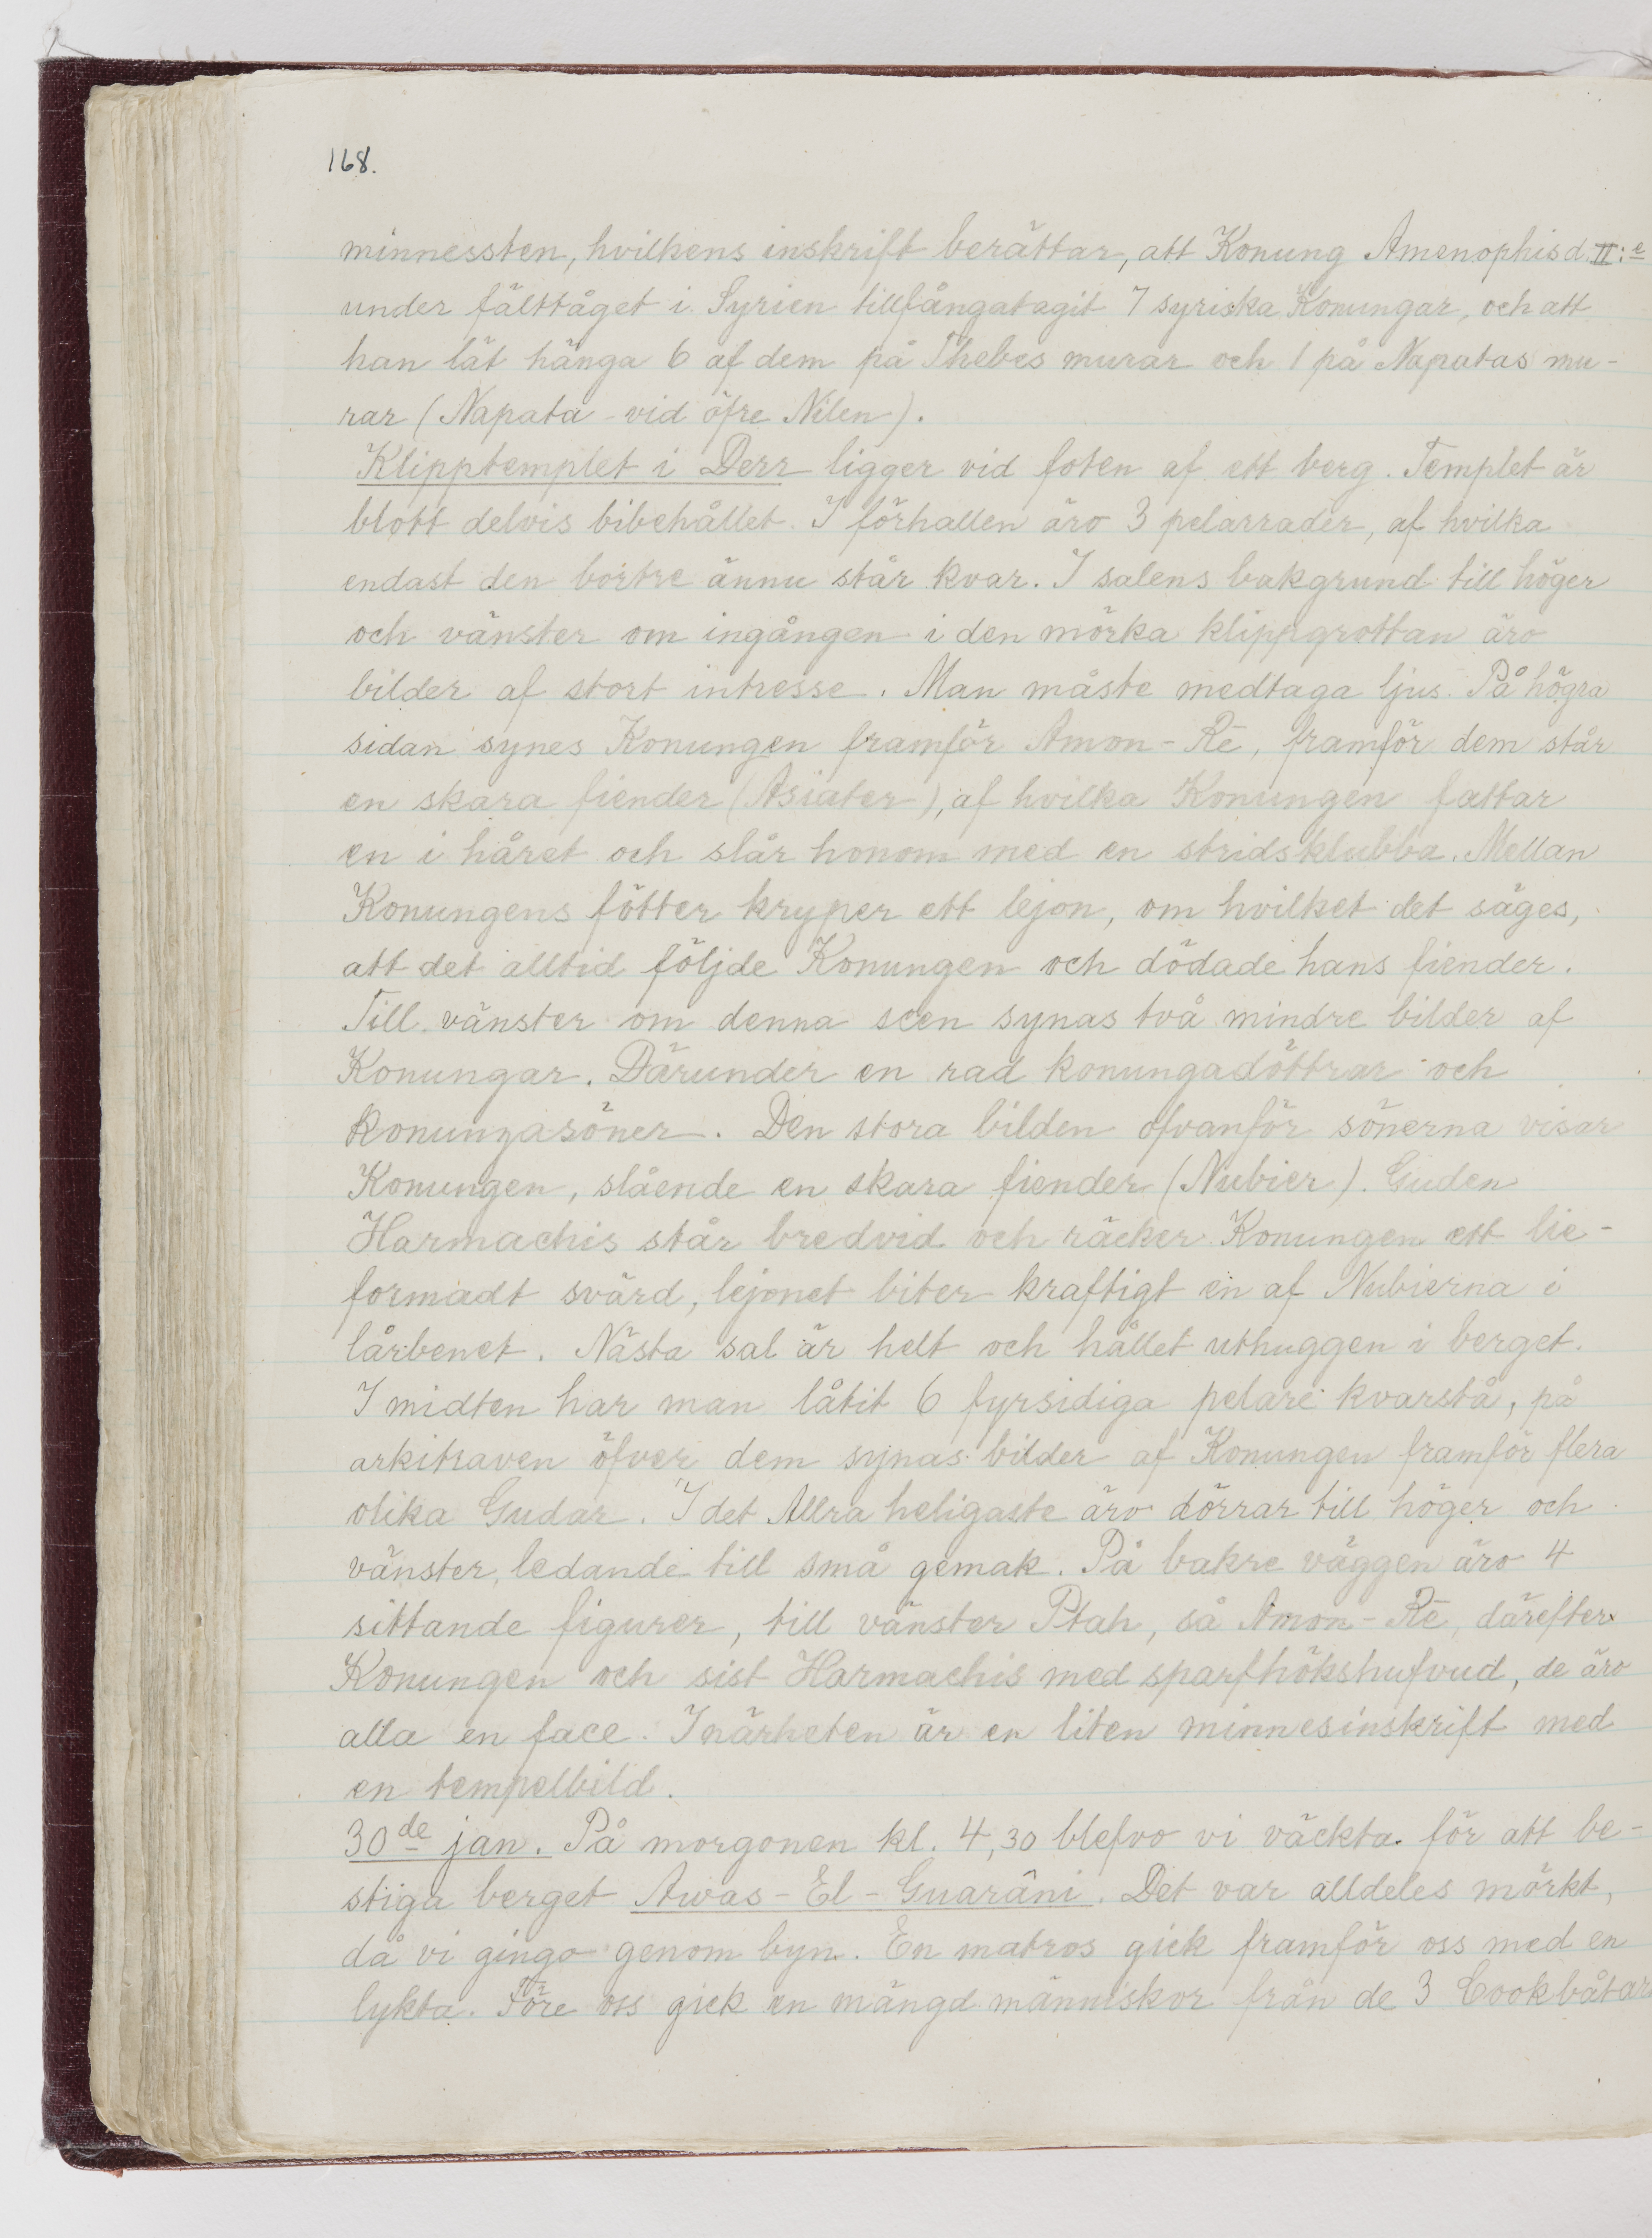 168.
minnessten, hvilkens inskrift berättar, att Konung Amenophis d. II:e
under fälttåget i Syrien tillfångatagit 7 syriska Konungar, och att
han lät hänga 6 af dem på Thebes murar och 1 på Napatas mu-
rar (Napata vid öfre Nilen).
Klipptemplet i Derr ligger vid foten af ett berg. Templet är
blott delvis bibehållet. I förhallen äro 3 pelarrader, af hvilka
endast den bortre ännu står kvar. I salens bakgrund till höger
och vänster om ingången i den mörka klippgrottan äro
bilder af stort intresse. Man måste medtaga ljus. På högra
sidan synes Konungen framför Amon-Rē, framför dem står
en skara fiender (Asiater), af hvilka Konungen fattar
en i håret och slår honom med en stridsklubba. Mellan
Konungens fötter kryper ett lejon, om hvilket det säges,
att det alltid följde Konungen och dödade hans fiender.
Till vänster om denna scen synas två mindre bilder af
Konungar. Därunder en rad konungadöttrar och
konungasöner. Den stora bilden ofvanför sönerna visar
Konungen, slående en skara fiender (Nubier). Guden
Harmachis står bredvid och räcker Konungen ett lie-
formadt svärd, lejonet biter kraftigt en af Nubierna i
lårbenet. Nästa sal är helt och hållet uthuggen i berget.
I midten har man låtit 6 fyrsidiga pelare kvarstå, på
arkitraven öfver dem synas bilder af Konungen framför flera
olika Gudar. I det Allra heligaste äro dörrar till höger och
vänster, ledande till små gemak. På bakre väggen äro 4
sittande figurer, till vänster Ptah, så Amon-Rē, därefter
Konungen och sist Harmachis med sparfhökshufvud, de äro
alla en face. I närheten är en liten minnesinskrift med
en tempelbild.
30de jan. På morgonen kl. 4,30 blefvo vi väckta för att be-
stiga berget Awas-El-Guarâni. Det var alldeles mörkt,
då vi gingo genom byn. En matros gick framför oss med en
lykta. Före oss gick en mängd människor från de 3 Cookbåtar